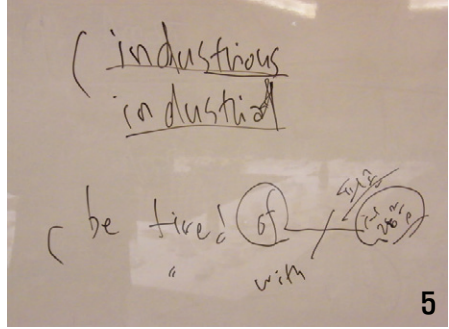 industrious
industrial
be tired of
" with
5